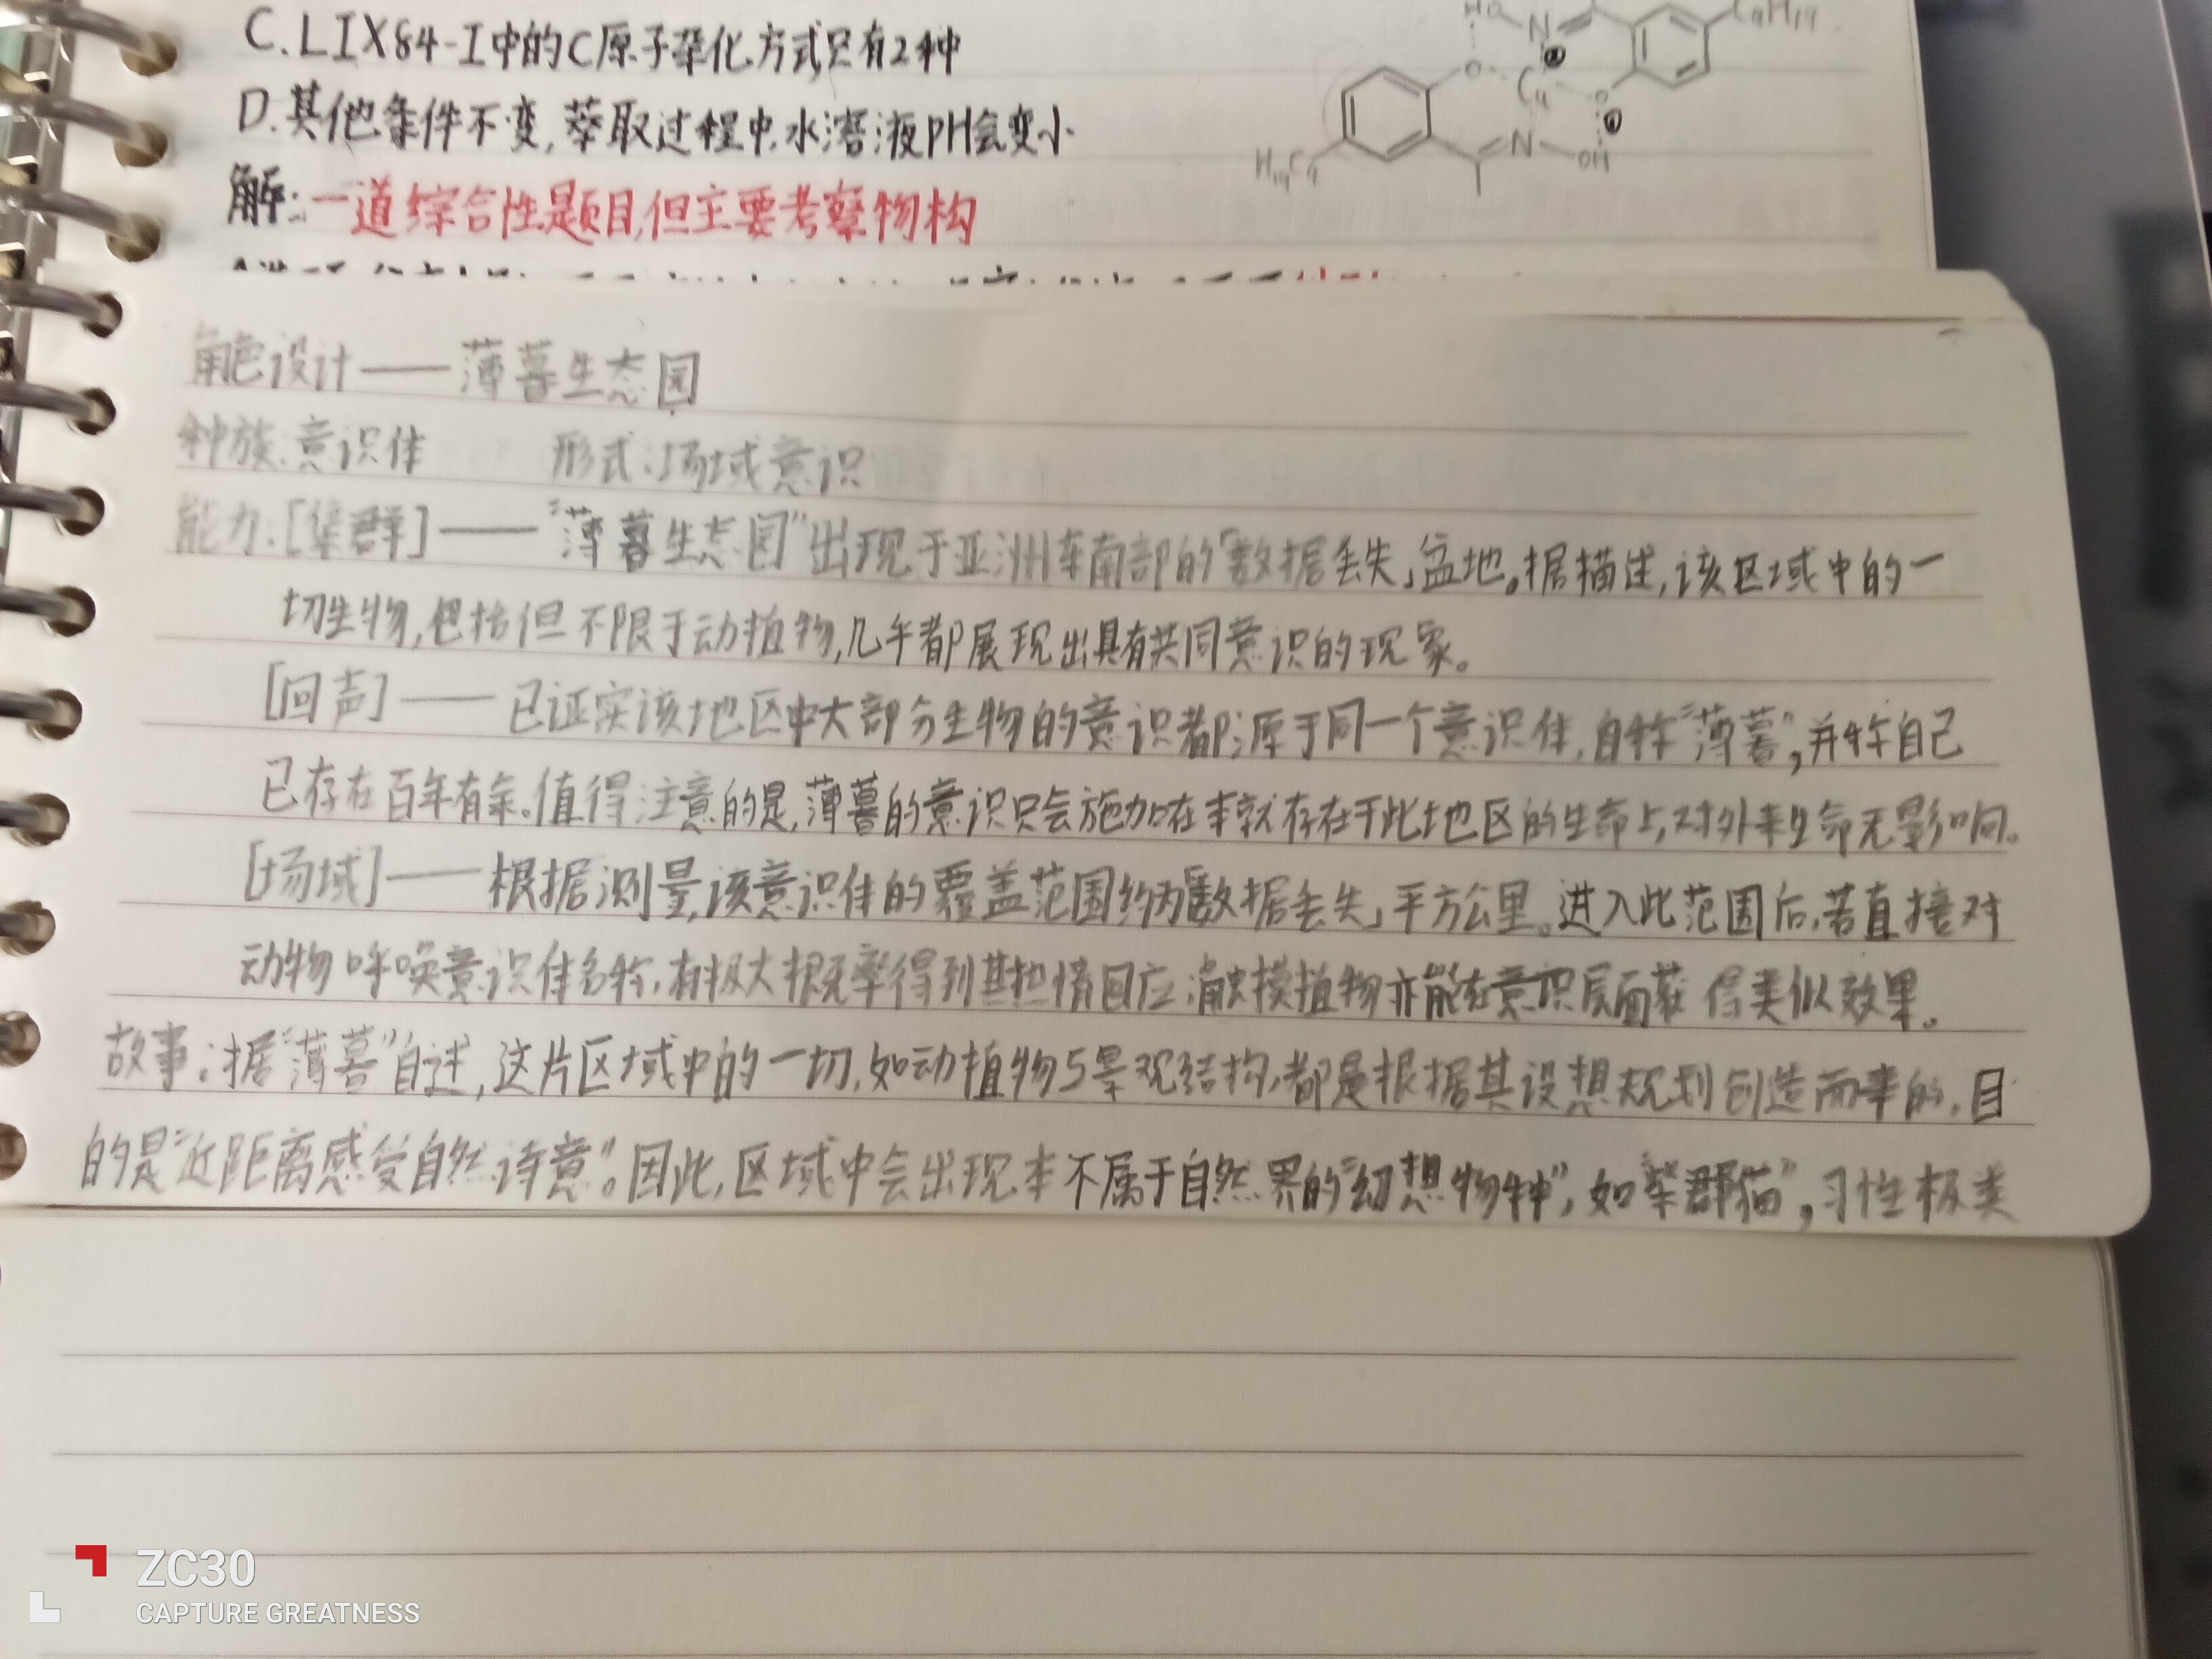 C.LIX84-I中的C原子杂化方式只有2种
D.其他条件不变,萃取过程中,水溶液pH会变小
解:一道综合性题目,但主要考察物构
HO N C₉H₁₉
O Cu O
N OH
H₁₉C₉
角色设计——薄暮生态园
种族:意识体 形式:场域意识
能力:[集群]——“薄暮生态园”出现于亚洲东南部的「数据丢失」盆地。据描述,该区域中的一
切生物,包括但不限于动植物,几乎都展现出具有共同意识的现象。
[回声]——已证实该地区中大部分生物的意识都源于同一个意识体,自称“薄暮”,并称自己
已存在百年有余。值得注意的是,薄暮的意识只会施加在本就存在于此地区的生命上,对外来生命无影响。
[场域]——根据测量,该意识体的覆盖范围约为「数据丢失」平方公里。进入此范围后,若直接对
动物呼唤意识体名称,有极大概率得到其热情回应;触摸植物亦能在意识层面获得类似效果。
故事:据“薄暮”自述,这片区域中的一切,如动植物与景观结构,都是根据其设想规划创造而来的,目
的是“近距离感受自然诗意”。因此,区域中会出现本不属于自然界的“幻想物种”,如“群猫”,习性极类
ZC30
CAPTURE GREATNESS